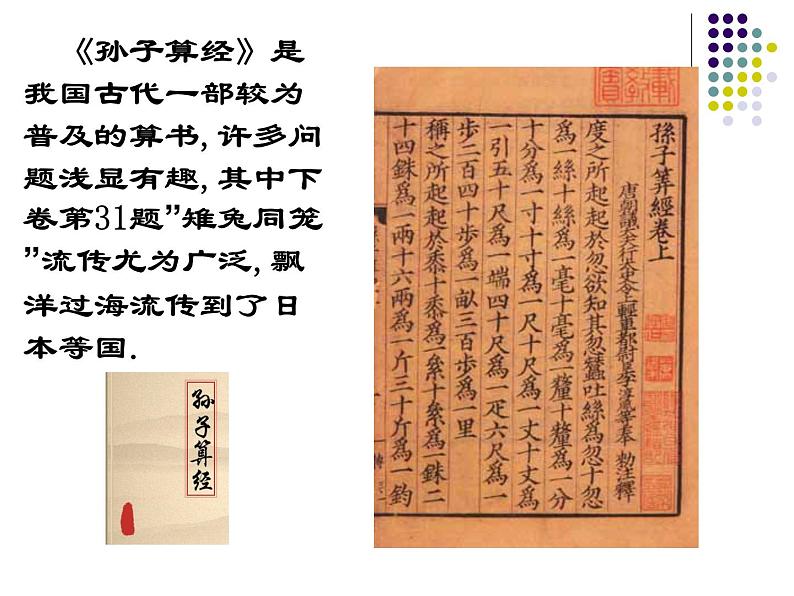 《孙子算经》是
我国古代一部较为
普及的算书,许多问
题浅显有趣,其中下
卷第31题"雉兔同笼
"流传尤为广泛,飘
洋过海流传到了日
本等国.
孙子算经
孫子筭經卷上
唐朝議大夫行太史令上輕車都尉臣李淳風等奉 勑注釋
度之所起起於忽欲知其忽蠶吐絲爲忽十忽
爲一絲十絲爲一毫十毫爲一釐十釐爲一分
十分爲一寸十寸爲一尺十尺爲一丈十丈爲
一引五十尺爲一端四十尺爲一疋六尺爲一
步二百四十步爲一畝三百步爲一里
稱之所起起於黍十黍爲一絫十絫爲一銖二
十四銖爲一兩十六兩爲一斤三十斤爲一鈞